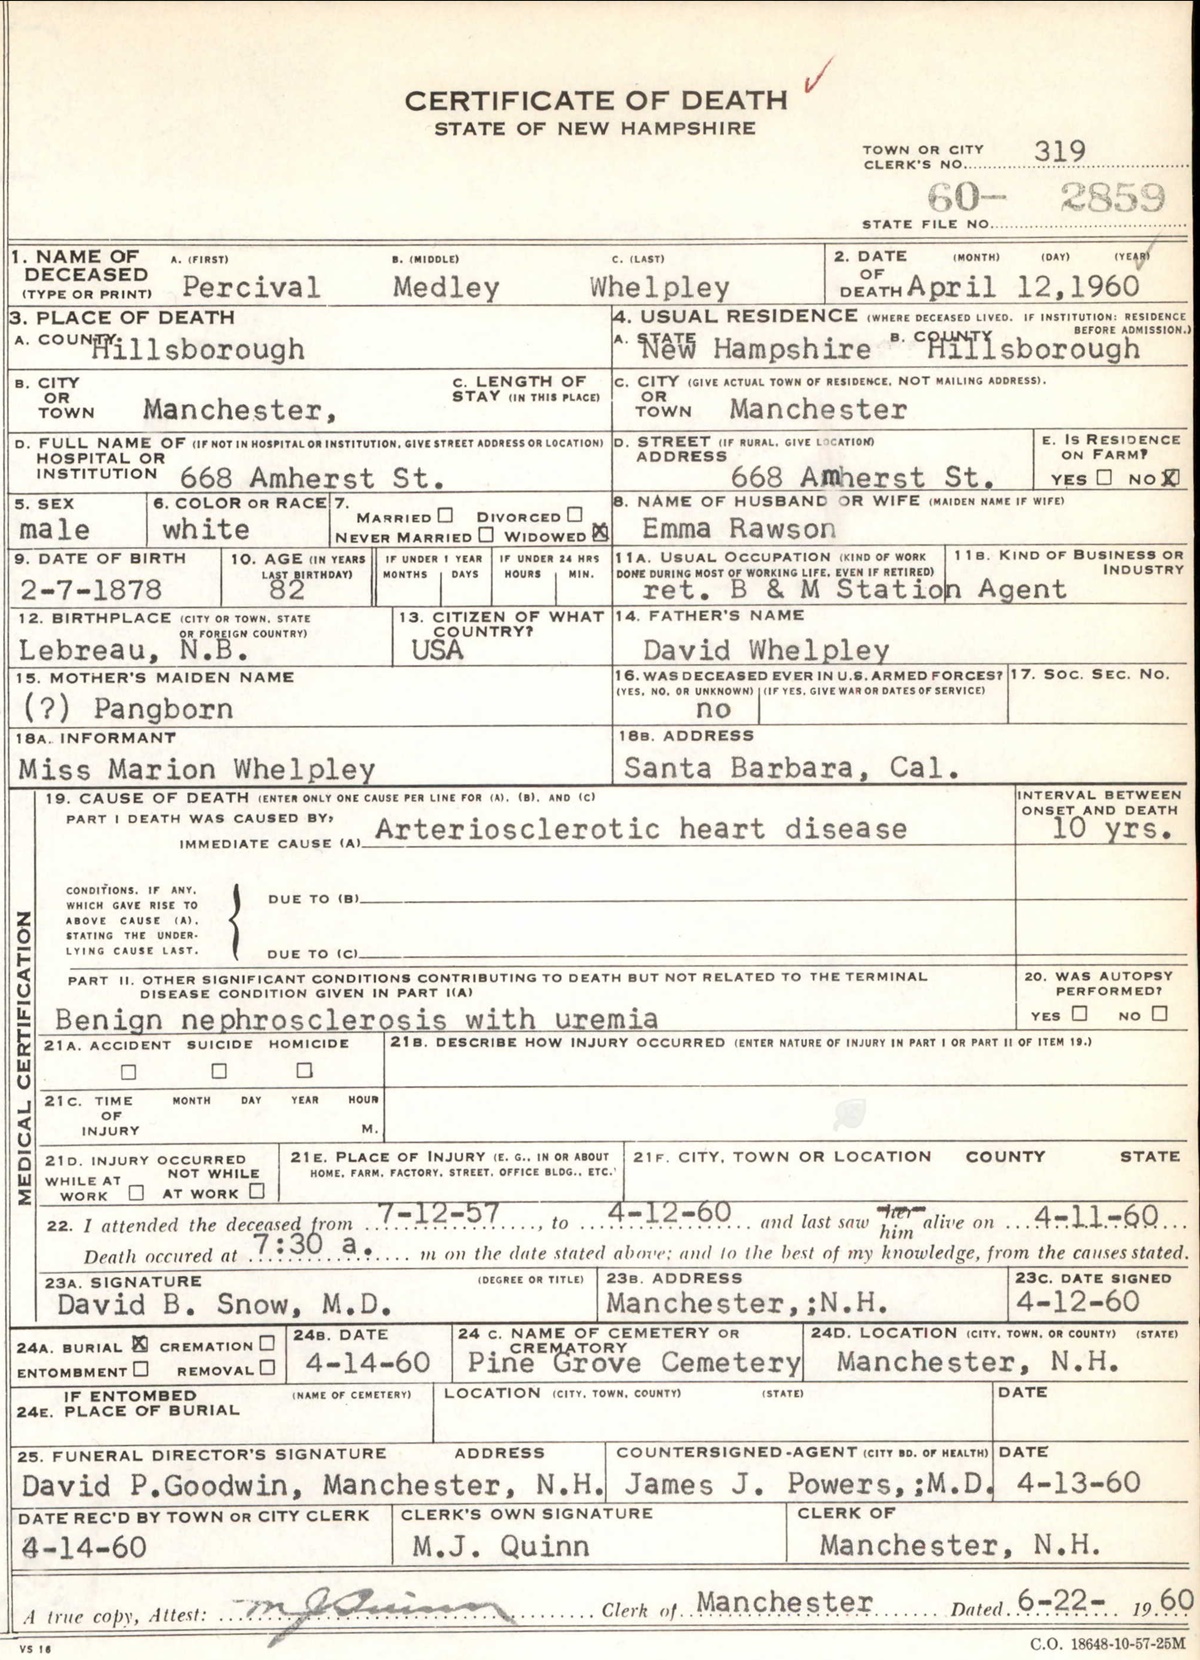 CERTIFICATE OF DEATH
STATE OF NEW HAMPSHIRE
TOWN OR CITY
CLERK'S NO. 319
60- 2859
STATE FILE NO.
1. NAME OF DECEASED (TYPE OR PRINT) A. (FIRST) B. (MIDDLE) C. (LAST)
Percival Medley Whelpley
2. DATE OF DEATH (MONTH) (DAY) (YEAR)
April 12,1960
3. PLACE OF DEATH
A. COUNTY Hillsborough
4. USUAL RESIDENCE (WHERE DECEASED LIVED. IF INSTITUTION: RESIDENCE BEFORE ADMISSION.)
A. STATE New Hampshire B. COUNTY Hillsborough
B. CITY OR TOWN Manchester,
C. LENGTH OF STAY (IN THIS PLACE)
C. CITY (GIVE ACTUAL TOWN OF RESIDENCE, NOT MAILING ADDRESS).
OR TOWN Manchester
D. FULL NAME OF (IF NOT IN HOSPITAL OR INSTITUTION, GIVE STREET ADDRESS OR LOCATION)
HOSPITAL OR INSTITUTION 668 Amherst St.
D. STREET (IF RURAL, GIVE LOCATION)
ADDRESS 668 Amherst St.
E. IS RESIDENCE ON FARM?
YES NO X
5. SEX
male
6. COLOR OR RACE
white
7. MARRIED DIVORCED
NEVER MARRIED WIDOWED X
8. NAME OF HUSBAND OR WIFE (MAIDEN NAME IF WIFE)
Emma Rawson
9. DATE OF BIRTH
2-7-1878
10. AGE (IN YEARS LAST BIRTHDAY)
82
IF UNDER 1 YEAR
MONTHS DAYS
IF UNDER 24 HRS
HOURS MIN.
11A. USUAL OCCUPATION (KIND OF WORK DONE DURING MOST OF WORKING LIFE, EVEN IF RETIRED)
11B. KIND OF BUSINESS OR INDUSTRY
ret. B & M Station Agent
12. BIRTHPLACE (CITY OR TOWN, STATE OR FOREIGN COUNTRY)
Lebreau, N.B.
13. CITIZEN OF WHAT COUNTRY?
USA
14. FATHER'S NAME
David Whelpley
15. MOTHER'S MAIDEN NAME
(?) Pangborn
16. WAS DECEASED EVER IN U.S. ARMED FORCES?
(YES, NO, OR UNKNOWN) (IF YES, GIVE WAR OR DATES OF SERVICE)
no
17. SOC. SEC. NO.
18A. INFORMANT
Miss Marion Whelpley
18B. ADDRESS
Santa Barbara, Cal.
MEDICAL CERTIFICATION
19. CAUSE OF DEATH (ENTER ONLY ONE CAUSE PER LINE FOR (A), (B), AND (C)
PART I DEATH WAS CAUSED BY:
IMMEDIATE CAUSE (A) Arteriosclerotic heart disease
INTERVAL BETWEEN ONSET AND DEATH
10 yrs.
CONDITIONS, IF ANY, WHICH GAVE RISE TO ABOVE CAUSE (A), STATING THE UNDERLYING CAUSE LAST.
DUE TO (B)
DUE TO (C)
PART II. OTHER SIGNIFICANT CONDITIONS CONTRIBUTING TO DEATH BUT NOT RELATED TO THE TERMINAL
DISEASE CONDITION GIVEN IN PART I(A)
Benign nephrosclerosis with uremia
20. WAS AUTOPSY PERFORMED?
YES NO
21A. ACCIDENT SUICIDE HOMICIDE
21B. DESCRIBE HOW INJURY OCCURRED (ENTER NATURE OF INJURY IN PART I OR PART II OF ITEM 19.)
21C. TIME OF INJURY MONTH DAY YEAR HOUR
M.
21D. INJURY OCCURRED
WHILE AT WORK NOT WHILE AT WORK
21E. PLACE OF INJURY (E. G., IN OR ABOUT HOME, FARM, FACTORY, STREET, OFFICE BLDG., ETC.)
21F. CITY, TOWN OR LOCATION COUNTY STATE
22. I attended the deceased from 7-12-57, to 4-12-60 and last saw her him alive on 4-11-60
Death occured at 7:30 a. m on the date stated above; and to the best of my knowledge, from the causes stated.
23A. SIGNATURE (DEGREE OR TITLE)
David B. Snow, M.D.
23B. ADDRESS
Manchester,;N.H.
23C. DATE SIGNED
4-12-60
24A. BURIAL X CREMATION
ENTOMBMENT REMOVAL
24B. DATE
4-14-60
24 C. NAME OF CEMETERY OR CREMATORY
Pine Grove Cemetery
24D. LOCATION (CITY, TOWN, OR COUNTY) (STATE)
Manchester, N.H.
IF ENTOMBED
24E. PLACE OF BURIAL (NAME OF CEMETERY)
LOCATION (CITY, TOWN, COUNTY) (STATE)
DATE
25. FUNERAL DIRECTOR'S SIGNATURE ADDRESS
David P.Goodwin, Manchester, N.H.
COUNTERSIGNED-AGENT (CITY BD. OF HEALTH)
James J. Powers,;M.D.
DATE
4-13-60
DATE REC'D BY TOWN OR CITY CLERK
4-14-60
CLERK'S OWN SIGNATURE
M.J. Quinn
CLERK OF
Manchester, N.H.
A true copy, Attest: M J Quinn Clerk of Manchester Dated 6-22- 1960
VS 16
C.O. 18648-10-57-25M